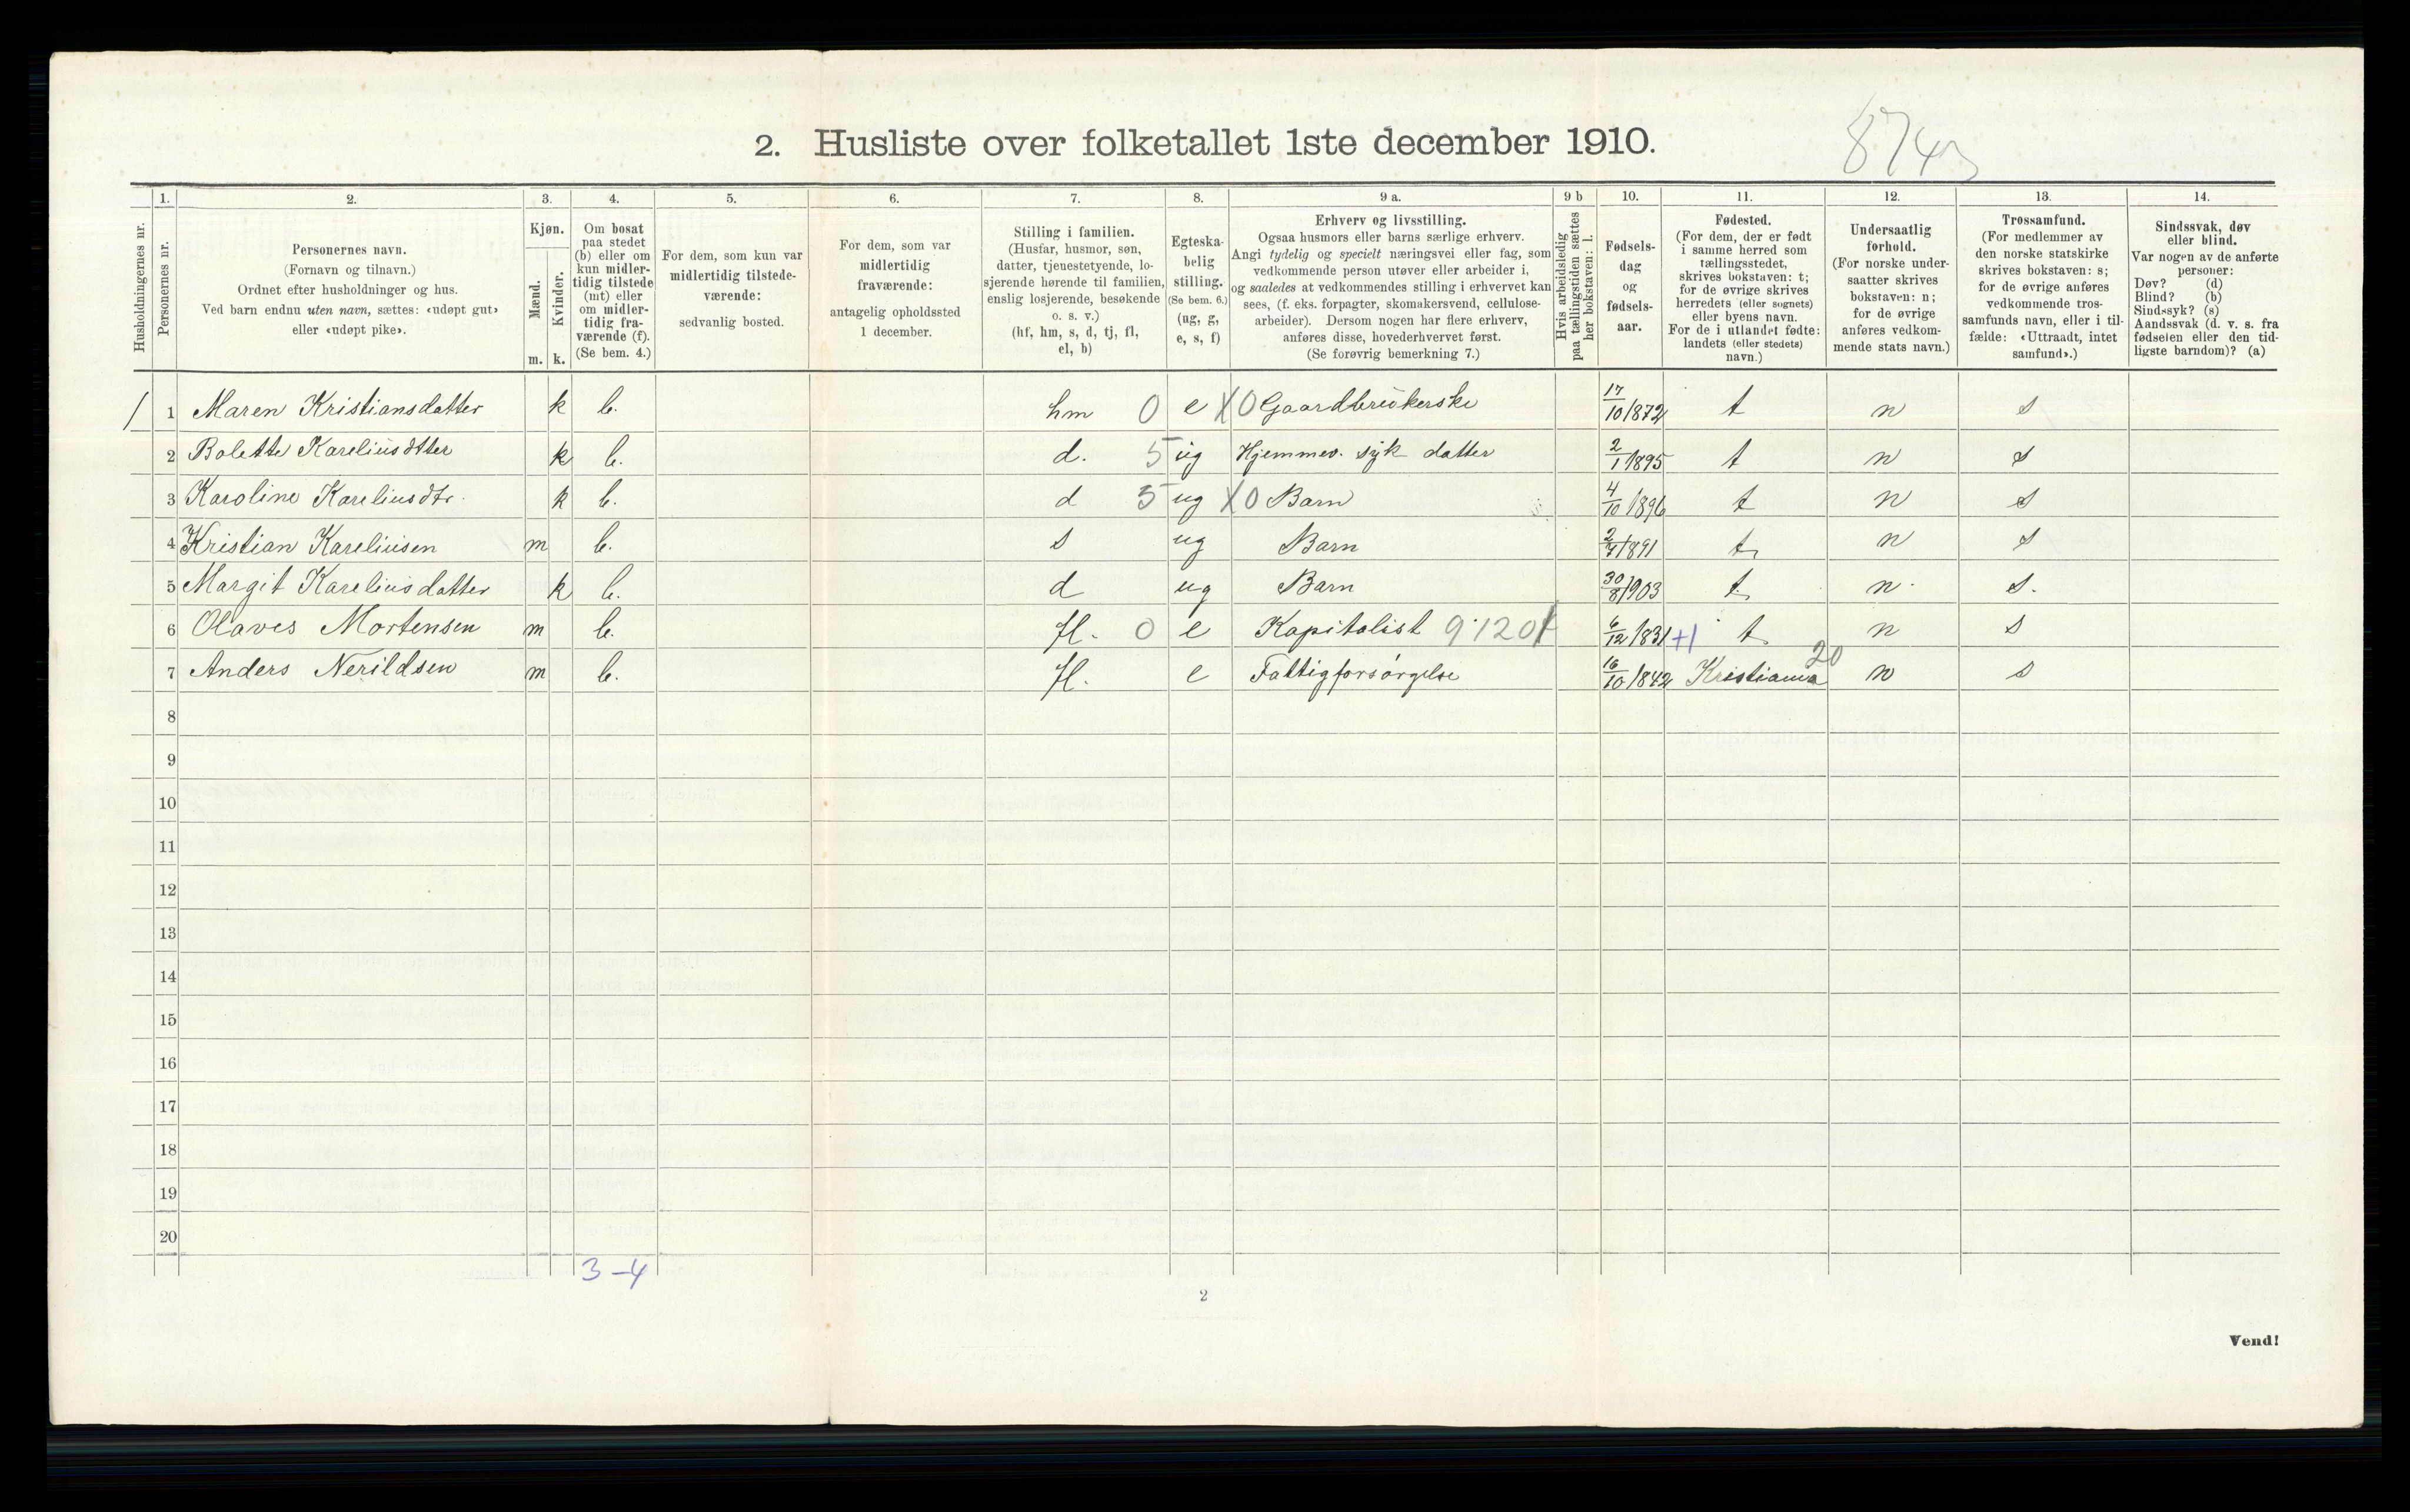 8743
2. Husliste over folketallet 1ste december 1910.
Husholdningernes nr.
1. Personernes nr.
2. Personernes navn.
(Fornavn og tilnavn.)
Ordnet efter husholdninger og hus.
Ved barn endnu uten navn, sættes: «udøpt gut»
eller «udøpt pike».
3. Kjøn.
Mænd. m.
Kvinder. k.
4. Om bosat
paa stedet
(b) eller om
kun midler-
tidig tilstede
(mt) eller
om midler-
tidig fra-
værende (f).
(Se bem. 4.)
5. For dem, som kun var
midlertidig tilstede-
værende:
sedvanlig bosted.
6. For dem, som var
midlertidig
fraværende:
antagelig opholdssted
1 december.
7. Stilling i familien.
(Husfar, husmor, søn,
datter, tjenestetyende, lo-
sjerende hørende til familien,
enslig losjerende, besøkende
o. s. v.)
(hf, hm, s, d, tj, fl,
el, b)
8. Egteska-
belig
stilling.
(Se bem. 6.)
(ug, g,
e, s, f)
9 a. Erhverv og livsstilling.
Ogsaa husmors eller barns særlige erhverv.
Angi tydelig og specielt næringsvei eller fag, som
vedkommende person utøver eller arbeider i,
og saaledes at vedkommendes stilling i erhvervet kan
sees, (f. eks. forpagter, skomakersvend, cellulose-
arbeider). Dersom nogen har flere erhverv,
anføres disse, hovederhvervet først.
(Se forøvrig bemerkning 7.)
9 b Hvis arbeidsledig
paa tællingstiden sættes
her bokstaven: l.
10. Fødsels-
dag
og
fødsels-
aar.
11. Fødested.
(For dem, der er født
i samme herred som
tællingsstedet,
skrives bokstaven: t;
for de øvrige skrives
herredets (eller sognets)
eller byens navn.
For de i utlandet fødte:
landets (eller stedets)
navn.)
12. Undersaatlig
forhold.
(For norske under-
saatter skrives
bokstaven: n;
for de øvrige
anføres vedkom-
mende stats navn.)
13. Trossamfund.
(For medlemmer av
den norske statskirke
skrives bokstaven: s;
for de øvrige anføres
vedkommende tros-
samfunds navn, eller i til-
fælde: «Uttraadt, intet
samfund».)
14. Sindssvak, døv
eller blind.
Var nogen av de anførte
personer:
Døv? (d)
Blind? (b)
Sindssyk? (s)
Aandssvak (d. v. s. fra
fødselen eller den tid-
ligste barndom)? (a)
1 1 Maren Kristiansdatter k b. hm 0 e X0 Gaardbrukerske 17/10 1872 t n s
2 Bolette Kareliusdtter k b. d. 5 ug Hjemmev. syk datter 2/1 1895 t n s
3 Karoline Kareliusdtr. k b. d 5 ug X0 Barn 4/10 1896 t n s
4 Kristian Kareliusen m b. s ug Barn t n s
5 Margit Kareliusdatter k b. d ug Barn 30/8 1903 t n s.
6 Olaves Mortensen m b. fl. 0 e Kapitalist 9'120 6/12 1831 +1 t n s
7 Anders Nerildsen m b. fl. e Fattigforsørgelse 16/10 1842 Kristiania 20 n s
8
9
10
11
12
13
14
15
16
17
18
19
20
3-4
2
Vend!